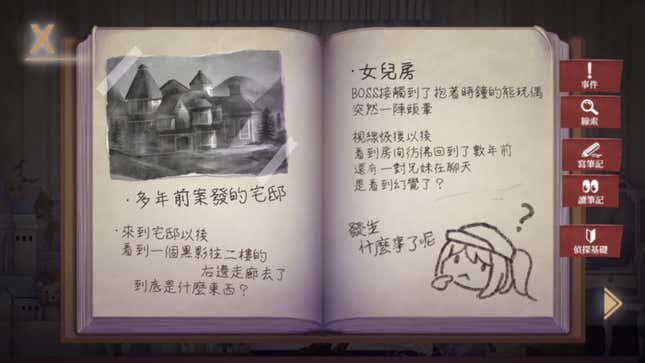 X
·多年前案發的宅邸
·來到宅邸以後
看到一個黑影往二樓的
右邊走廊去了
到底是什麼東西？
·女兒房
BOSS接觸到了抱著時鐘的熊玩偶
突然一陣頭暈
視線恢復以後
看到房間彷彿回到了數年前
還有一對兄妹在聊天
是看到幻覺了？
發生
什麼事了呢
?
!
事件
線索
寫筆記
讀筆記
偵探基礎